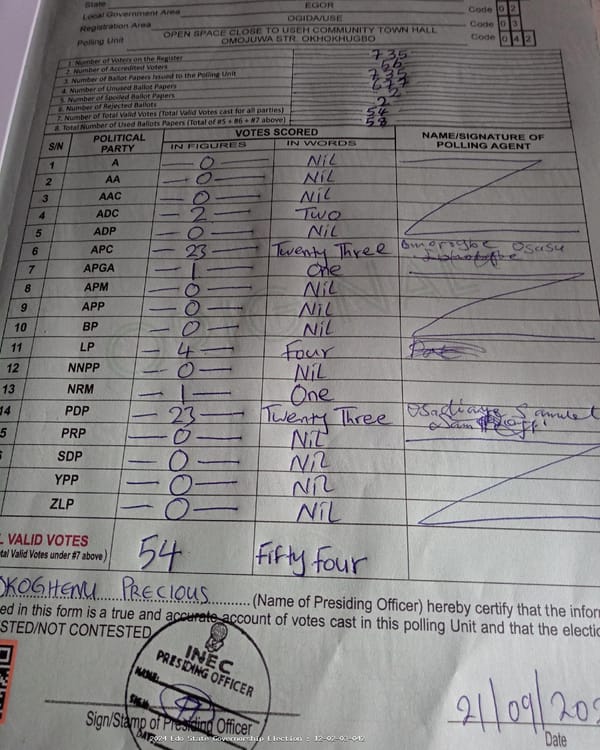 State EGOR Code 0 2
Local Government Area OGIDA/USE Code 0 3
Registration Area OPEN SPACE CLOSE TO USEH COMMUNITY TOWN HALL Code 0 4 2
Polling Unit OMOJUWA STR. OKHOKHUGBO
1. Number of Voters on the Register 735
2. Number of Accredited Voters 56
3. Number of Ballot Papers Issued to the Polling Unit 735
4. Number of Unused Ballot Papers 677
5. Number of Spoiled Ballot Papers 2
6. Number of Rejected Ballots 2
7. Number of Total Valid Votes (Total Valid Votes cast for all parties) 54
8. Total Number of Used Ballots Papers (Total of #5 + #6 + #7 above) 58
S/N POLITICAL PARTY VOTES SCORED NAME/SIGNATURE OF POLLING AGENT
IN FIGURES IN WORDS
1 A 0 Nil
2 AA 0 Nil
3 AAC 0 Nil
4 ADC 2 Two
5 ADP 0 Nil
6 APC 23 Twenty Three Osasu
7 APGA 1 One
8 APM 0 Nil
9 APP 0 Nil
10 BP 0 Nil
11 LP 4 Four
12 NNPP 0 Nil
13 NRM 1 One
14 PDP 23 Twenty Three Samuel
5 PRP 0 Nil
SDP 0 Nil
YPP 0 Nil
ZLP 0 Nil
L VALID VOTES
tal Valid Votes under #7 above) 54 Fifty Four
OKOGHENU PRECIOUS (Name of Presiding Officer) hereby certify that the infor
ed in this form is a true and accurate account of votes cast in this polling Unit and that the electio
STED/NOT CONTESTED
INEC
PRESIDING OFFICER
NAME:
SIGN
DATE
Sign/Stamp of Presiding Officer
21/09/202
Date
2024 Edo State Governorship Election : 12-02-03-042